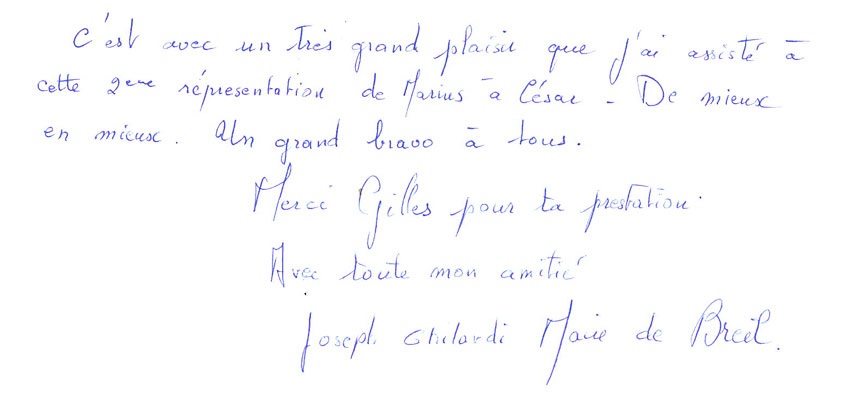 C'est avec un très grand plaisir que j'ai assisté à
cette 2eme réprésentation de Marius à César - De mieux
en mieux. Un grand bravo à tous.
Merci Gilles pour ta prestation.
Avec toute mon amitié
Joseph Ghilardi Maire de Breil.